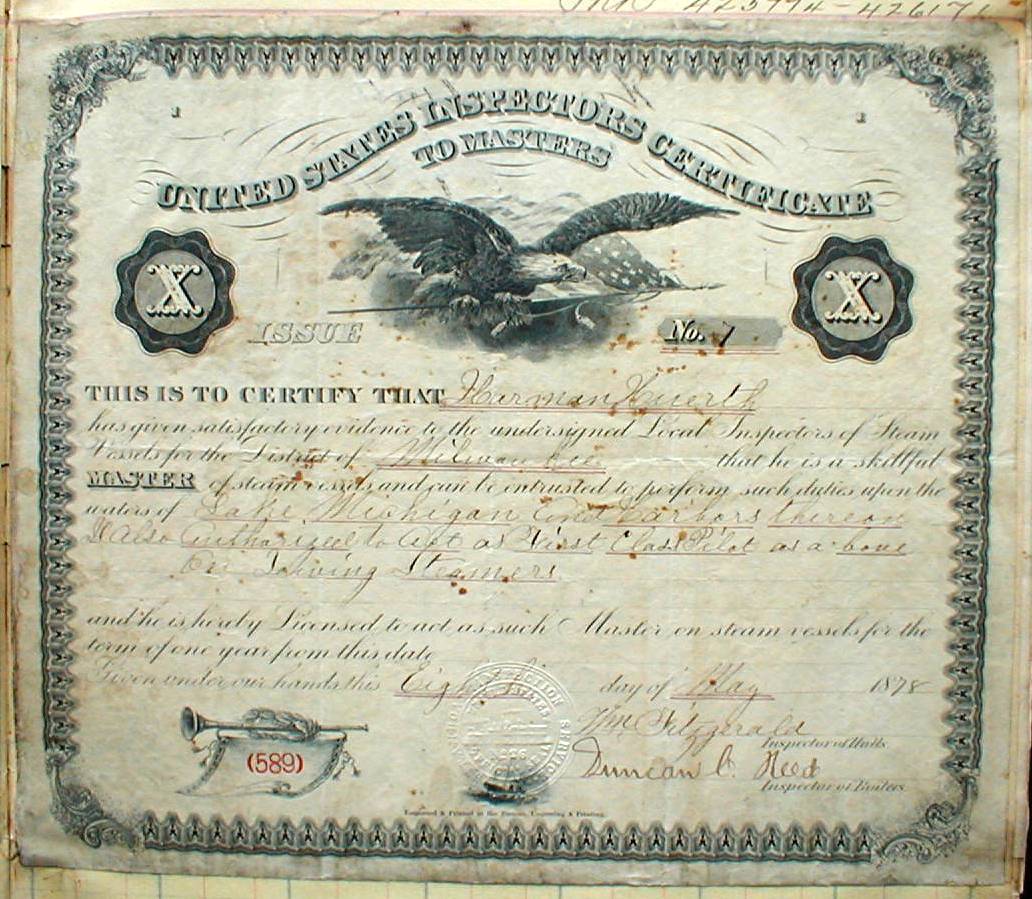 425774 - 426171
1 1
UNITED STATES INSPECTORS CERTIFICATE
TO MASTERS
X X
ISSUE No. 7
THIS IS TO CERTIFY THAT Harman Huerth
has given satisfactory evidence to the undersigned Local Inspectors of Steam
Vessels for the District of Milwaukee that he is a skillful
MASTER of steam vessels and can be intrusted to perform such duties upon the
waters of Lake Michigan and harbors thereon
Is Also Authorized to Act as First Class Pilot as above
On Towing Steamers
and he is hereby Licensed to act as such Master on steam vessels for the
term of one year from this date
Given under our hands this Eighth day of May 1878
Wm Fitzgerald
Inspector of Hulls
(589)
Duncan C. Reed
Inspector of Boilers
Engraved & Printed at the Bureau, Engraving & Printing.